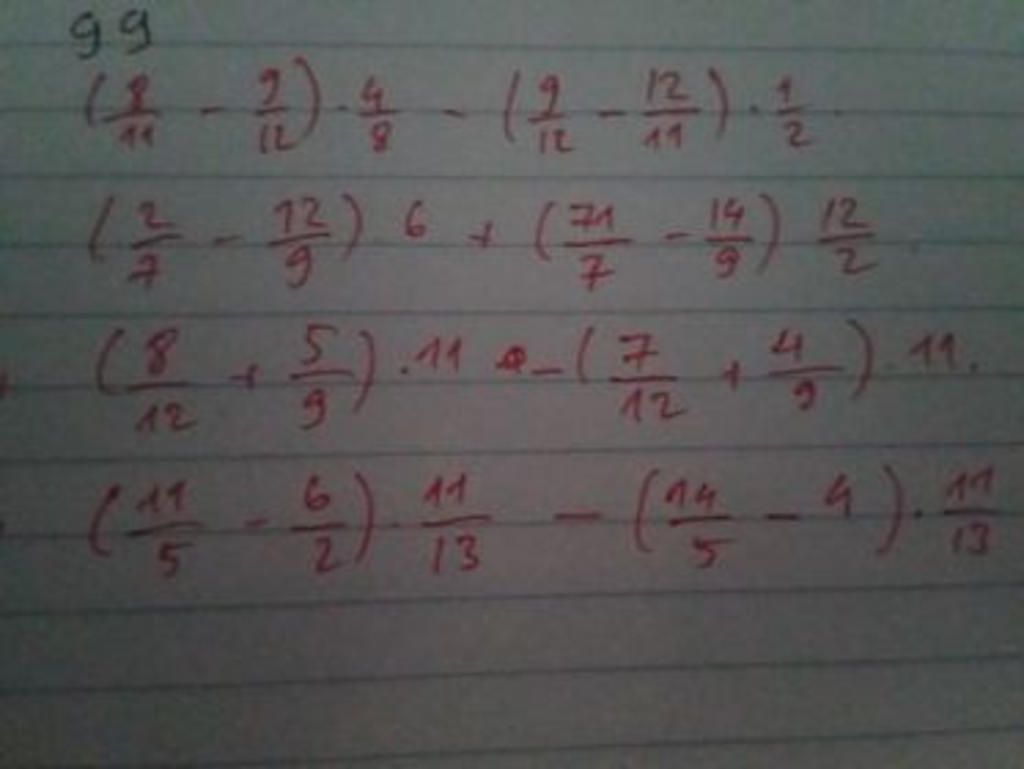 99
(8/11 - 9/12) · 4/8 - (9/12 - 12/11) · 1/2
(2/7 - 12/9) · 6 + (71/7 - 14/9) 12/2
(8/12 + 5/9) · 11 - (7/12 + 4/9) · 11.
(11/5 - 6/2) · 11/13 - (14/5 - 4) · 11/13